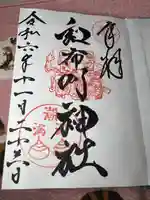 奉拝
和布刈神社
令和六年十一月二十六日